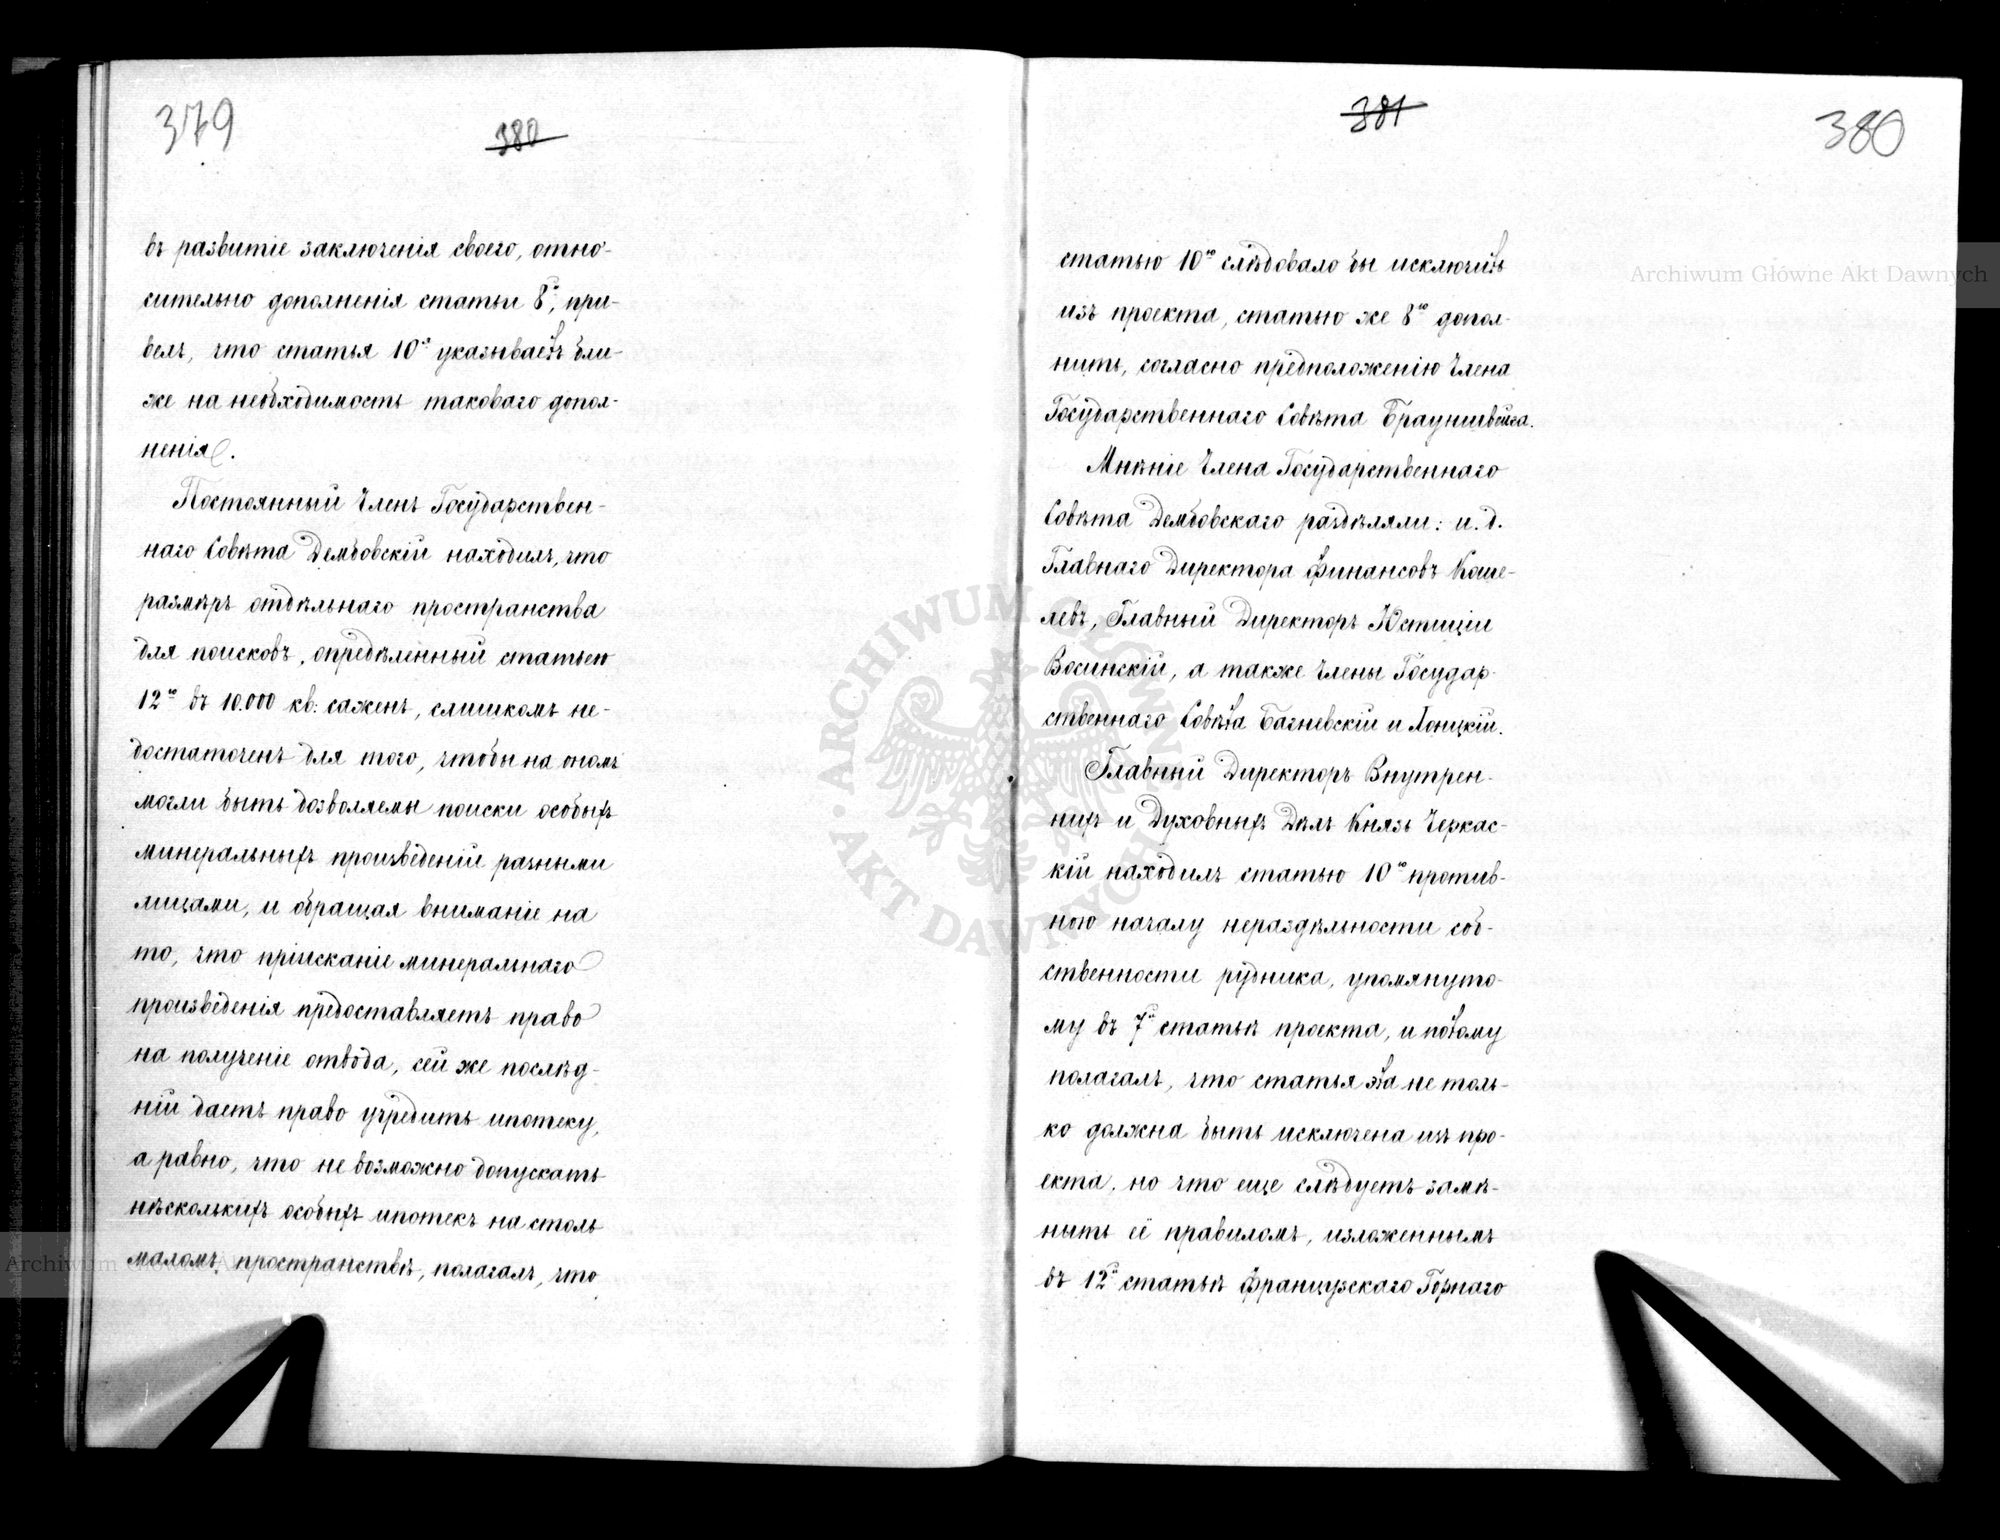 379
380
въ развитіе заключенія своего, отно-
сительно дополненія статьи 8й, при-
велъ, что статья 10я указываетъ бли-
же на необходимость таковаго допол-
ненія.
Постоянный Членъ Государствен-
наго Совѣта Дембовскій находилъ, что
размѣръ отдѣльнаго пространства
для поисковъ, опредѣленный статьею
12ю въ 10.000 кв: саженъ, слишкомъ не-
достаточенъ для того, чтобы на ономъ
могли быть дозволяемы поиски особыхъ
минеральныхъ произведеній разными
лицами, и обращая вниманіе на
то, что пріисканіе минеральнаго
произведенія предоставляетъ право
на полученіе отвода, сей же послѣд-
ній даетъ право учредить ипотеку,
а равно, что не возможно допускать
нѣсколькихъ особыхъ ипотекъ на столь
маломъ пространствѣ, полагалъ, что
381
380
статью 10ю слѣдовало бы исключить
изъ проекта, статью же 8ю допол-
нить, согласно предположенію Члена
Государственнаго Совѣта Брауншвейга.
Мнѣніе Члена Государственнаго
Совѣта Дембовскаго раздѣляли: и. д.
Главнаго Директора Финансовъ Коше-
левъ, Главный Директоръ Юстиціи
Восинскій, а также Члены Государ-
ственнаго Совѣта Багневскій и Лонцкій.
Главный Директоръ Внутрен-
нихъ и Духовныхъ Дѣлъ Князь Черкас-
кій находилъ статью 10ю против-
ною началу нераздѣльности соб-
ственности рудника, упомянуто-
му въ 7й статьѣ проекта, и потому
полагалъ, что статья эта не толь-
ко должна быть исключена изъ про-
екта, но что еще слѣдуетъ замѣ-
нить её правиломъ, изложеннымъ
въ 12й статьѣ Французскаго Горнаго
Archiwum Główne Akt Dawnych
ARCHIWUM GŁÓWNE · AKT DAWNYCH ·